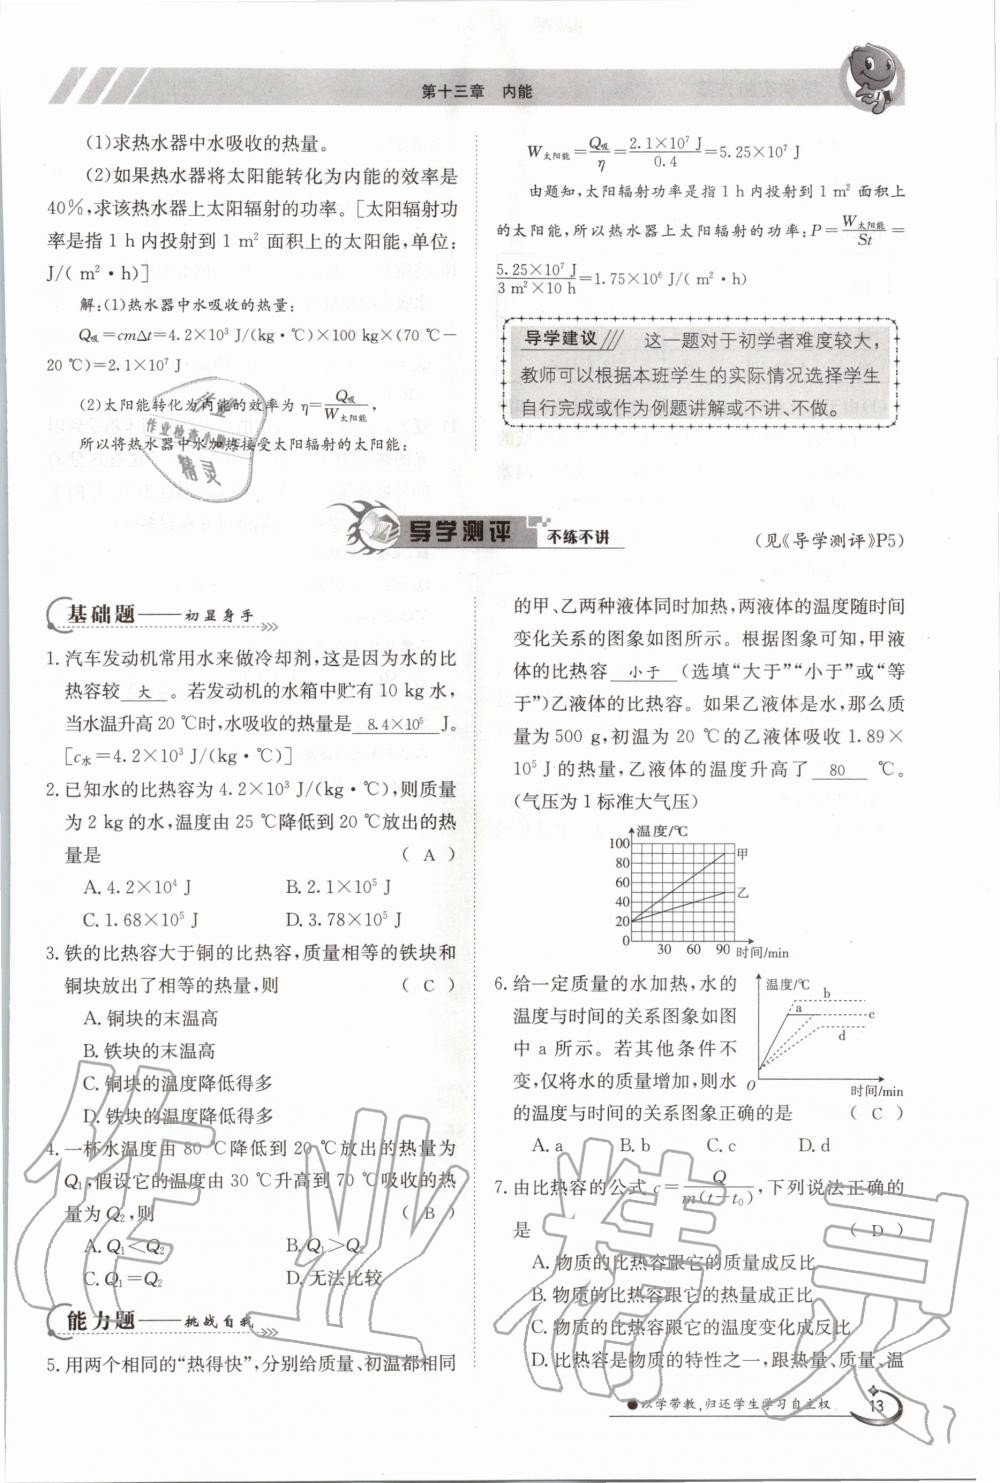 第十三章　内能
(1)求热水器中水吸收的热量。
(2)如果热水器将太阳能转化为内能的效率是
40%,求该热水器上太阳辐射的功率。[太阳辐射功
率是指 1 h 内投射到 1 m² 面积上的太阳能,单位:
J/( m²·h)]
解:(1)热水器中水吸收的热量:
Q吸=cmΔt=4.2×10³ J/(kg·℃)×100 kg×(70 ℃－
20 ℃)=2.1×10⁷ J
(2)太阳能转化为内能的效率为 η=Q吸/W太阳能,
所以将热水器中水加热接受太阳辐射的太阳能:
W太阳能=Q吸/η=2.1×10⁷ J/0.4=5.25×10⁷ J
由题知,太阳辐射功率是指 1 h 内投射到 1 m² 面积上
的太阳能,所以热水器上太阳辐射的功率:P=W太阳能/St=
5.25×10⁷ J/3 m²×10 h=1.75×10⁶ J/( m²·h)
导学建议/// 这一题对于初学者难度较大,
教师可以根据本班学生的实际情况选择学生
自行完成或作为例题讲解或不讲、不做。
导学测评 不练不讲
(见《导学测评》P5)
基础题——初显身手
1. 汽车发动机常用水来做冷却剂,这是因为水的比
热容较 大 。若发动机的水箱中贮有 10 kg 水,
当水温升高 20 ℃时,水吸收的热量是 8.4×10⁵ J。
[c水=4.2×10³ J/(kg·℃)]
2. 已知水的比热容为 4.2×10³ J/(kg·℃),则质量
为 2 kg 的水,温度由 25 ℃降低到 20 ℃放出的热
量是 ( A )
A. 4.2×10⁴ J B. 2.1×10⁵ J
C. 1.68×10⁵ J D. 3.78×10⁵ J
3. 铁的比热容大于铜的比热容,质量相等的铁块和
铜块放出了相等的热量,则 ( C )
A. 铜块的末温高
B. 铁块的末温高
C. 铜块的温度降低得多
D. 铁块的温度降低得多
4. 一杯水温度由 80 ℃降低到 20 ℃放出的热量为
Q₁,假设它的温度由 30 ℃升高到 70 ℃吸收的热
量为 Q₂,则 ( B )
A. Q₁<Q₂ B. Q₁>Q₂
C. Q₁=Q₂ D. 无法比较
能力题——挑战自我
5. 用两个相同的“热得快”,分别给质量、初温都相同
的甲、乙两种液体同时加热,两液体的温度随时间
变化关系的图象如图所示。根据图象可知,甲液
体的比热容 小于 (选填“大于”“小于”或“等
于”)乙液体的比热容。如果乙液体是水,那么质
量为 500 g,初温为 20 ℃的乙液体吸收 1.89×
10⁵ J 的热量,乙液体的温度升高了 80 ℃。
(气压为 1 标准大气压)
温度/℃
100
80
60
40
20
0
30 60 90 时间/min
甲
乙
6. 给一定质量的水加热,水的
温度与时间的关系图象如图
中 a 所示。若其他条件不
变,仅将水的质量增加,则水
的温度与时间的关系图象正确的是 ( C )
温度/℃
b
a
c
d
O
时间/min
A. a B. b C. c D. d
7. 由比热容的公式 c=Q/m(t－t₀),下列说法正确的
是 ( D )
A. 物质的比热容跟它的质量成反比
B. 物质的比热容跟它的热量成正比
C. 物质的比热容跟它的温度变化成反比
D. 比热容是物质的特性之一,跟热量、质量、温
●以学带教,归还学生学习自主权 13
作业
作业检查小助手
精灵
作业精灵